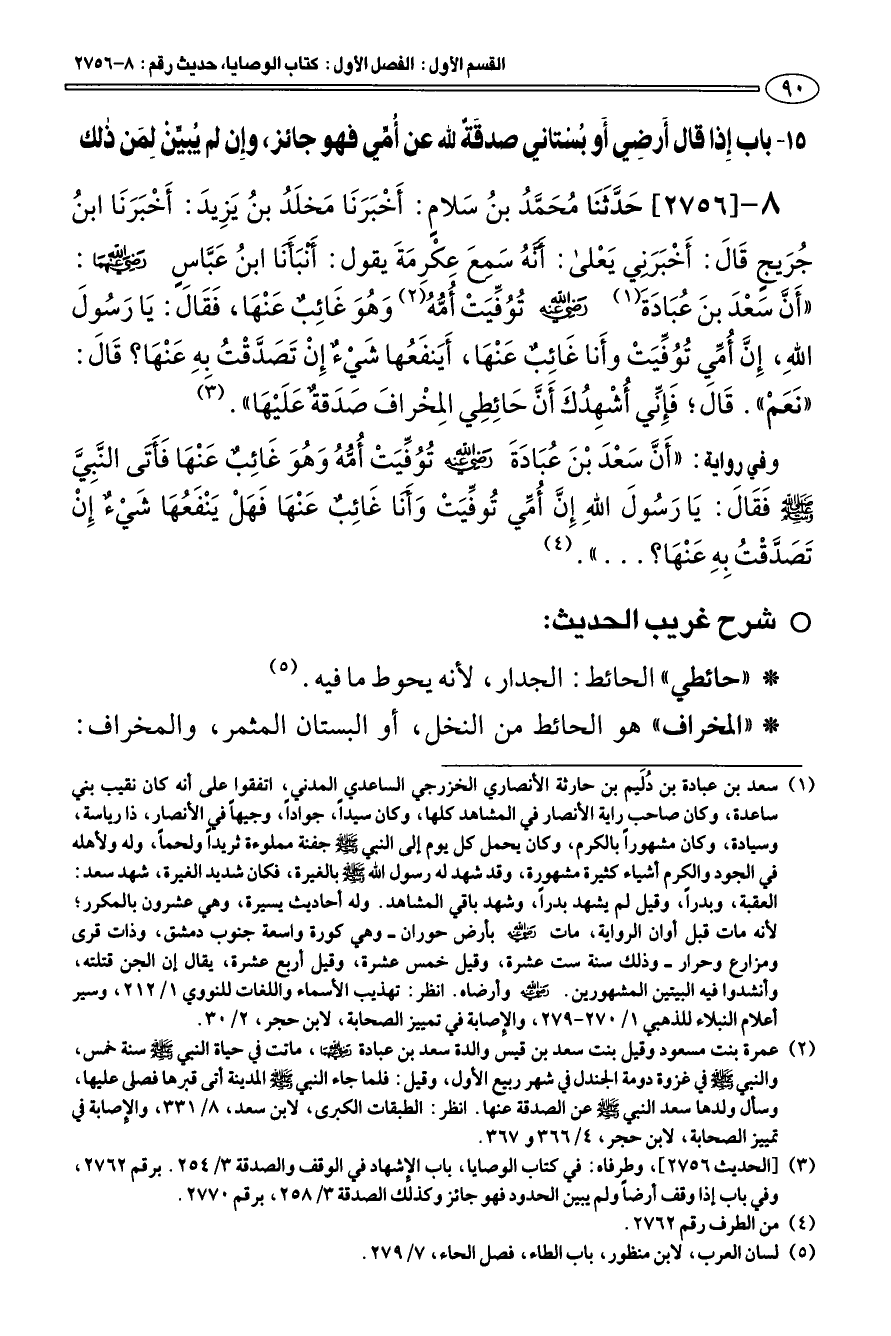 القسم الأول: الفصل الأول: كتاب الوصايا، حديث رقم: ٨-٢٧٥٦
٩٠
١٥- باب إذا قال أَرضِي أَو بُسْتاني صدقةٌ لله عن أُمِّي فهو جائز، وإن لم يُبيِّنْ لِمَن ذٰلك
٨-[٢٧٥٦] حَدَّثَنَا مُحَمَّدُ بنُ سَلامٍ: أَخْبَرَنَا مَخلَدُ بنُ يَزِيدَ: أَخْبَرَنَا ابنُ
جُرَيجٍ قَالَ: أَخْبَرَنِي يَعْلىٰ: أَنَّهُ سَمِعَ عِكْرِمَةَ يقول: أَنْبَأَنَا ابنُ عَبَّاسٍ رضي الله عنهما:
«أَنَّ سَعْدَ بنَ عُبَادَةَ(١) رضي الله عنه تُوُفِّيَتْ أُمُّهُ(٢) وَهُوَ غَائِبٌ عَنْهَا، فَقَالَ: يَا رَسُولَ
اللهِ، إِنَّ أُمِّي تُوُفِّيَتْ وأَنا غَائِبٌ عَنْهَا، أَيَنفَعُها شَيْءٌ إِنْ تَصَدَّقْتُ بِهِ عَنْهَا؟ قَالَ:
«نَعَمْ». قَالَ؛ فَإِنِّي أُشْهِدُكَ أَنَّ حَائِطِي المِخْرافَ صَدَقةٌ عَلَيْهَا».(٣)
وفي رواية: «أَنَّ سَعْدَ بْنَ عُبَادَةَ رضي الله عنه تُوُفِّيَتْ أُمُّهُ وَهُوَ غَائِبٌ عَنْهَا فَأَتَى النَّبِيَّ
ﷺ فَقَالَ: يَا رَسُولَ اللهِ إِنَّ أُمِّي تُوفِّيَتْ وَأَنَا غَائِبٌ عَنْهَا فَهَلْ يَنْفَعُهَا شَيْءٌ إِنْ
تَصَدَّقْتُ بِهِ عَنْهَا؟ ...».(٤)
○ شرح غريب الحديث:
* «حائطي» الحائط: الجدار، لأنه يحوط ما فيه.(٥)
* «المخراف» هو الحائط من النخل، أو البستان المثمر، والمخراف:
(١) سعد بن عبادة بن دُلَيم بن حارثة الأنصاري الخزرجي الساعدي المدني، اتفقوا على أنه كان نقيب بني
ساعدة، وكان صاحب راية الأنصار في المشاهد كلها، وكان سيداً، جواداً، وجيهاً في الأنصار، ذا رياسة،
وسيادة، وكان مشهوراً بالكرم، وكان يحمل كل يوم إلى النبي ﷺ جفنة مملوءة ثريداً ولحماً، وله ولأهله
في الجود والكرم أشياء كثيرة مشهورة، وقد شهد له رسول الله ﷺ بالغيرة، فكان شديد الغيرة، شهد سعد:
العقبة، وبدراً، وقيل لم يشهد بدراً، وشهد باقي المشاهد. وله أحاديث يسيرة، وهي عشرون بالمكرر؛
لأنه مات قبل أوان الرواية، مات رضي الله عنه بأرض حوران ـ وهي كورة واسعة جنوب دمشق، وذات قرى
ومزارع وحرار ـ وذلك سنة ست عشرة، وقيل خمس عشرة، وقيل أربع عشرة، يقال إن الجن قتلته،
وأنشدوا فيه البيتين المشهورين. رضي الله عنه وأرضاه. انظر: تهذيب الأسماء واللغات للنووي ١/ ٢١٢، وسير
أعلام النبلاء للذهبي ١/ ٢٧٠-٢٧٩، والإصابة في تمييز الصحابة، لابن حجر، ٢/ ٣٠.
(٢) عمرة بنت مسعود وقيل بنت سعد بن قيس والدة سعد بن عبادة رضي الله عنهما، ماتت في حياة النبي ﷺ سنة خمس،
والنبي ﷺ في غزوة دومة الجندل في شهر ربيع الأول، وقيل: فلما جاء النبي ﷺ المدينة أتى قبرها فصلى عليها،
وسأل ولدها سعد النبي ﷺ عن الصدقة عنها. انظر: الطبقات الكبرى، لابن سعد، ٨/ ٣٣١، والإصابة في
تمييز الصحابة، لابن حجر، ٤/ ٣٦٦ و ٣٦٧.
(٣) [الحديث ٢٧٥٦]، وطرفاه: في كتاب الوصايا، باب الإشهاد في الوقف والصدقة ٣/ ٢٥٤. برقم ٢٧٦٢،
وفي باب إذا وقف أرضاً ولم يبين الحدود فهو جائز وكذلك الصدقة ٣/ ٢٥٨، برقم ٢٧٧٠.
(٤) من الطرف رقم ٢٧٦٢.
(٥) لسان العرب، لابن منظور، باب الطاء، فصل الحاء، ٧/ ٢٧٩.